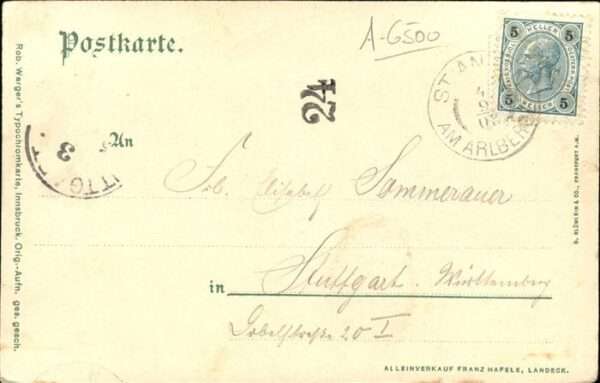 Postkarte.
A-6500
5 HELLER 5
5 HELLER 5
ST. AN
AM ARLBERG
24
An
TTG
3
Elisabet Sommerauer
in Stuttgart. Württemberg
20 I
Rob. Warger's Typochromkarte, Innsbruck, Orig.-Aufn. ges. gesch.
ALLEINVERKAUF FRANZ HAFELE, LANDECK.